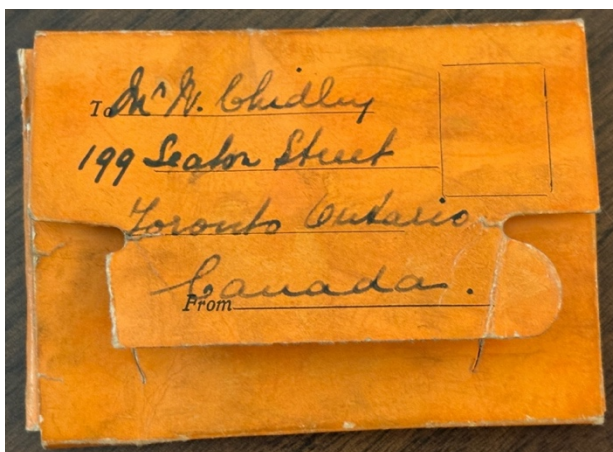 To Mr W. Chidley
199 Seaton Street
Toronto Ontario
Canada.
From